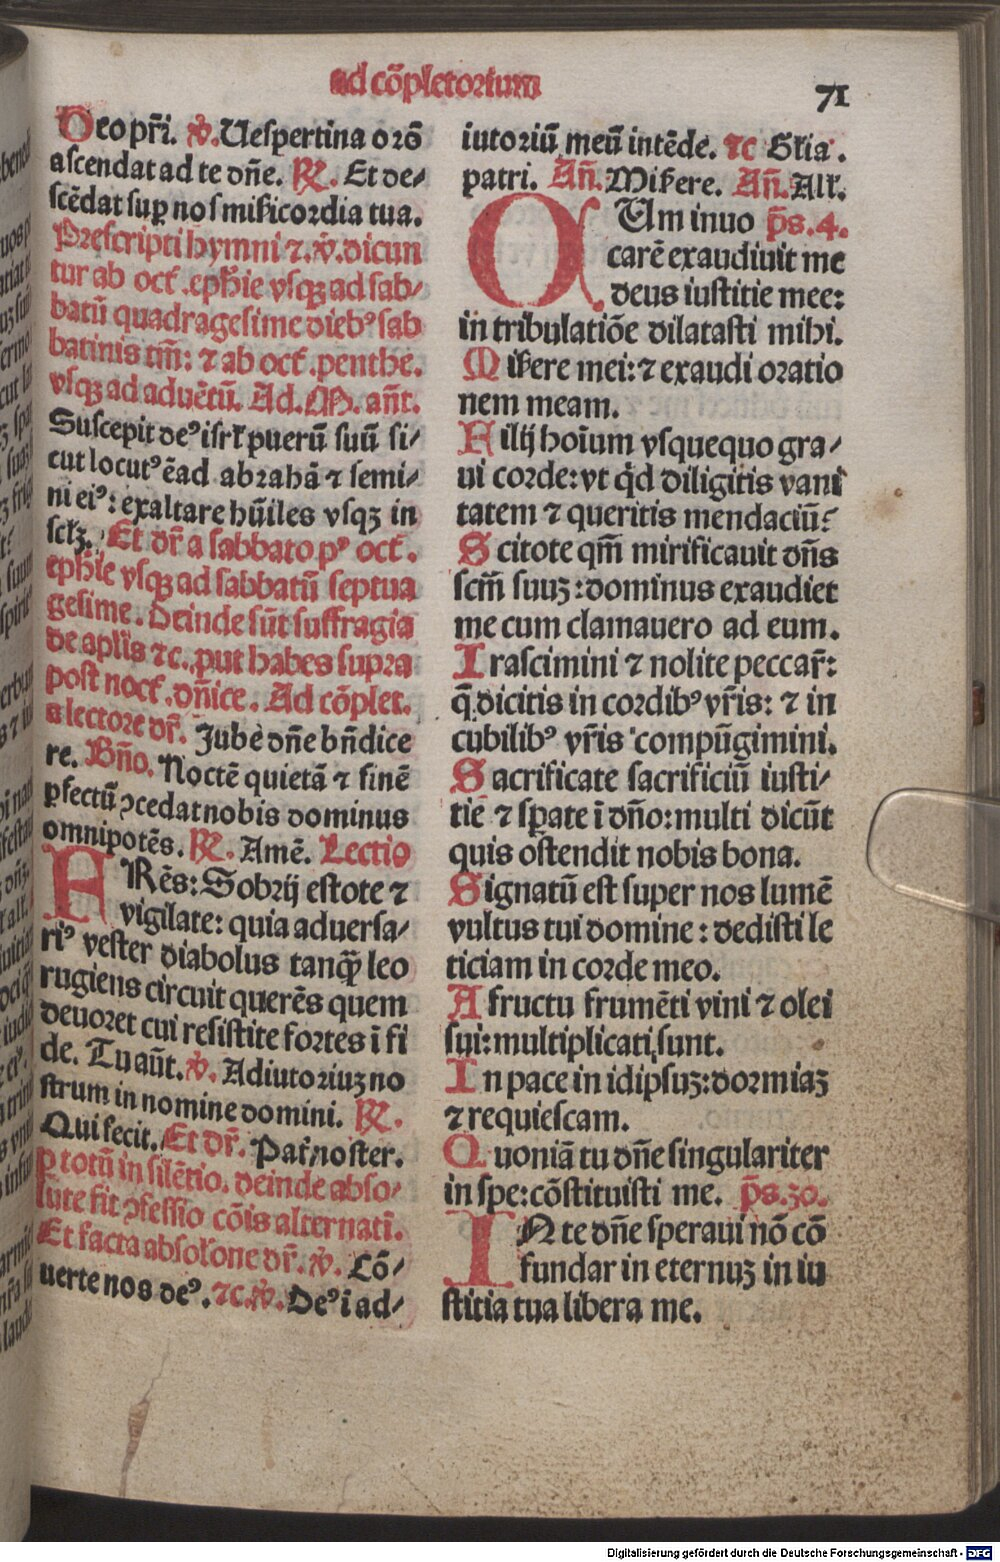 ad cōpletorium
71
Deo pr̄i. ℣. Uespertina orō
ascendat ad te dn̄e. ℟. Et de⸗
scēdat suꝑ nos mīsicordia tua.
Prescripti hymni ⁊ .℣. dicun
tur ab oct̄ .ephīe vsqꝫ ad sab⸗
batū quadragesime diebꝰ sab
batinis tm̄: ⁊ ab oct̄ .penthe.
vsqꝫ ad aduētū. Ad. M. an̄t.
Suscepit deꝰ isrł puerū suū si⸗
cut locutꝰ ē ad abrahā ⁊ semi⸗
ni eiꝰ: exaltare hūiles vsqꝫ in
scłꝫ. Et dr̄ a sabbato pꝰ oct̄.
ephīe vsqꝫ ad sabbatū septua
gesime. Deinde sūt suffragia
de aplīs ⁊c. put habes supra
post noct̄ .dn̄ice. Ad cōplet.
a lectore dr̄. Jube dn̄e bn̄dice
re. Bn̄o. Noctē quietā ⁊ finē
ꝑfectū ꝯcedat nobis dominus
omnipotēs. ℟. Amē. Lectio
FRēs: Sobrij estote ⁊
vigilate: quia aduersa⸗
riꝰ vester diabolus tanq̄ꝫ leo
rugiens circuit querēs quem
deuoret cui resistite fortes ī fi
de. Tu aūt. ℣. Adiutoriuꝫ no
strum in nomine domini. ℟.
Qui fecit. Et dr̄. Pat̄ noster.
ꝑ totū in silētio. deinde abso⸗
lute fit ꝯfessio cōis alternatī.
Et facta absolōne dr̄. ℣. Cō⸗
uerte nos deꝰ. ⁊c. ℣. Deꝰ ī ad⸗
iutoriū meū intēde. ⁊c Glīa .
patri. An̄. Miſere. An̄. Alł.
CUm inuo ps̄.4.
carē exaudiuit me
deus iustitie mee:
in tribulatiōe dilatasti mihi.
Miſere mei: ⁊ exaudi oratio
nem meam.
Filij hoīum vsquequo gra⸗
ui corde: vt qd̄ diligitis vani
tatem ⁊ queritis mendaciū?
Scitote qm̄ mirificauit dn̄s
scm̄ suuꝫ: dominus exaudiet
me cum clamauero ad eum.
Irascimini ⁊ nolite peccar̄:
q̄ dicitis in cordibꝰ vr̄is: ⁊ in
cubilibꝰ vr̄is compūgimini.
Sacrificate sacrificiū iusti⸗
tie ⁊ sꝑate ī dn̄o: multi dicūt
quis ostendit nobis bona.
Signatū est super nos lumē
vultus tui domine: dedisti le
ticiam in corde meo.
A fructu frumēti vini ⁊ olei
sui: multiplicati sunt.
In pace in idipsuꝫ: dormiaꝫ
⁊ requiescam.
Quoniā tu dn̄e singulariter
in spe: cōstituisti me. ps̄.30.
IN te dn̄e speraui nō cō
fundar in eternuꝫ in iu
stitia tua libera me.
Digitalisierung gefördert durch die Deutsche Forschungsgemeinschaft - DFG